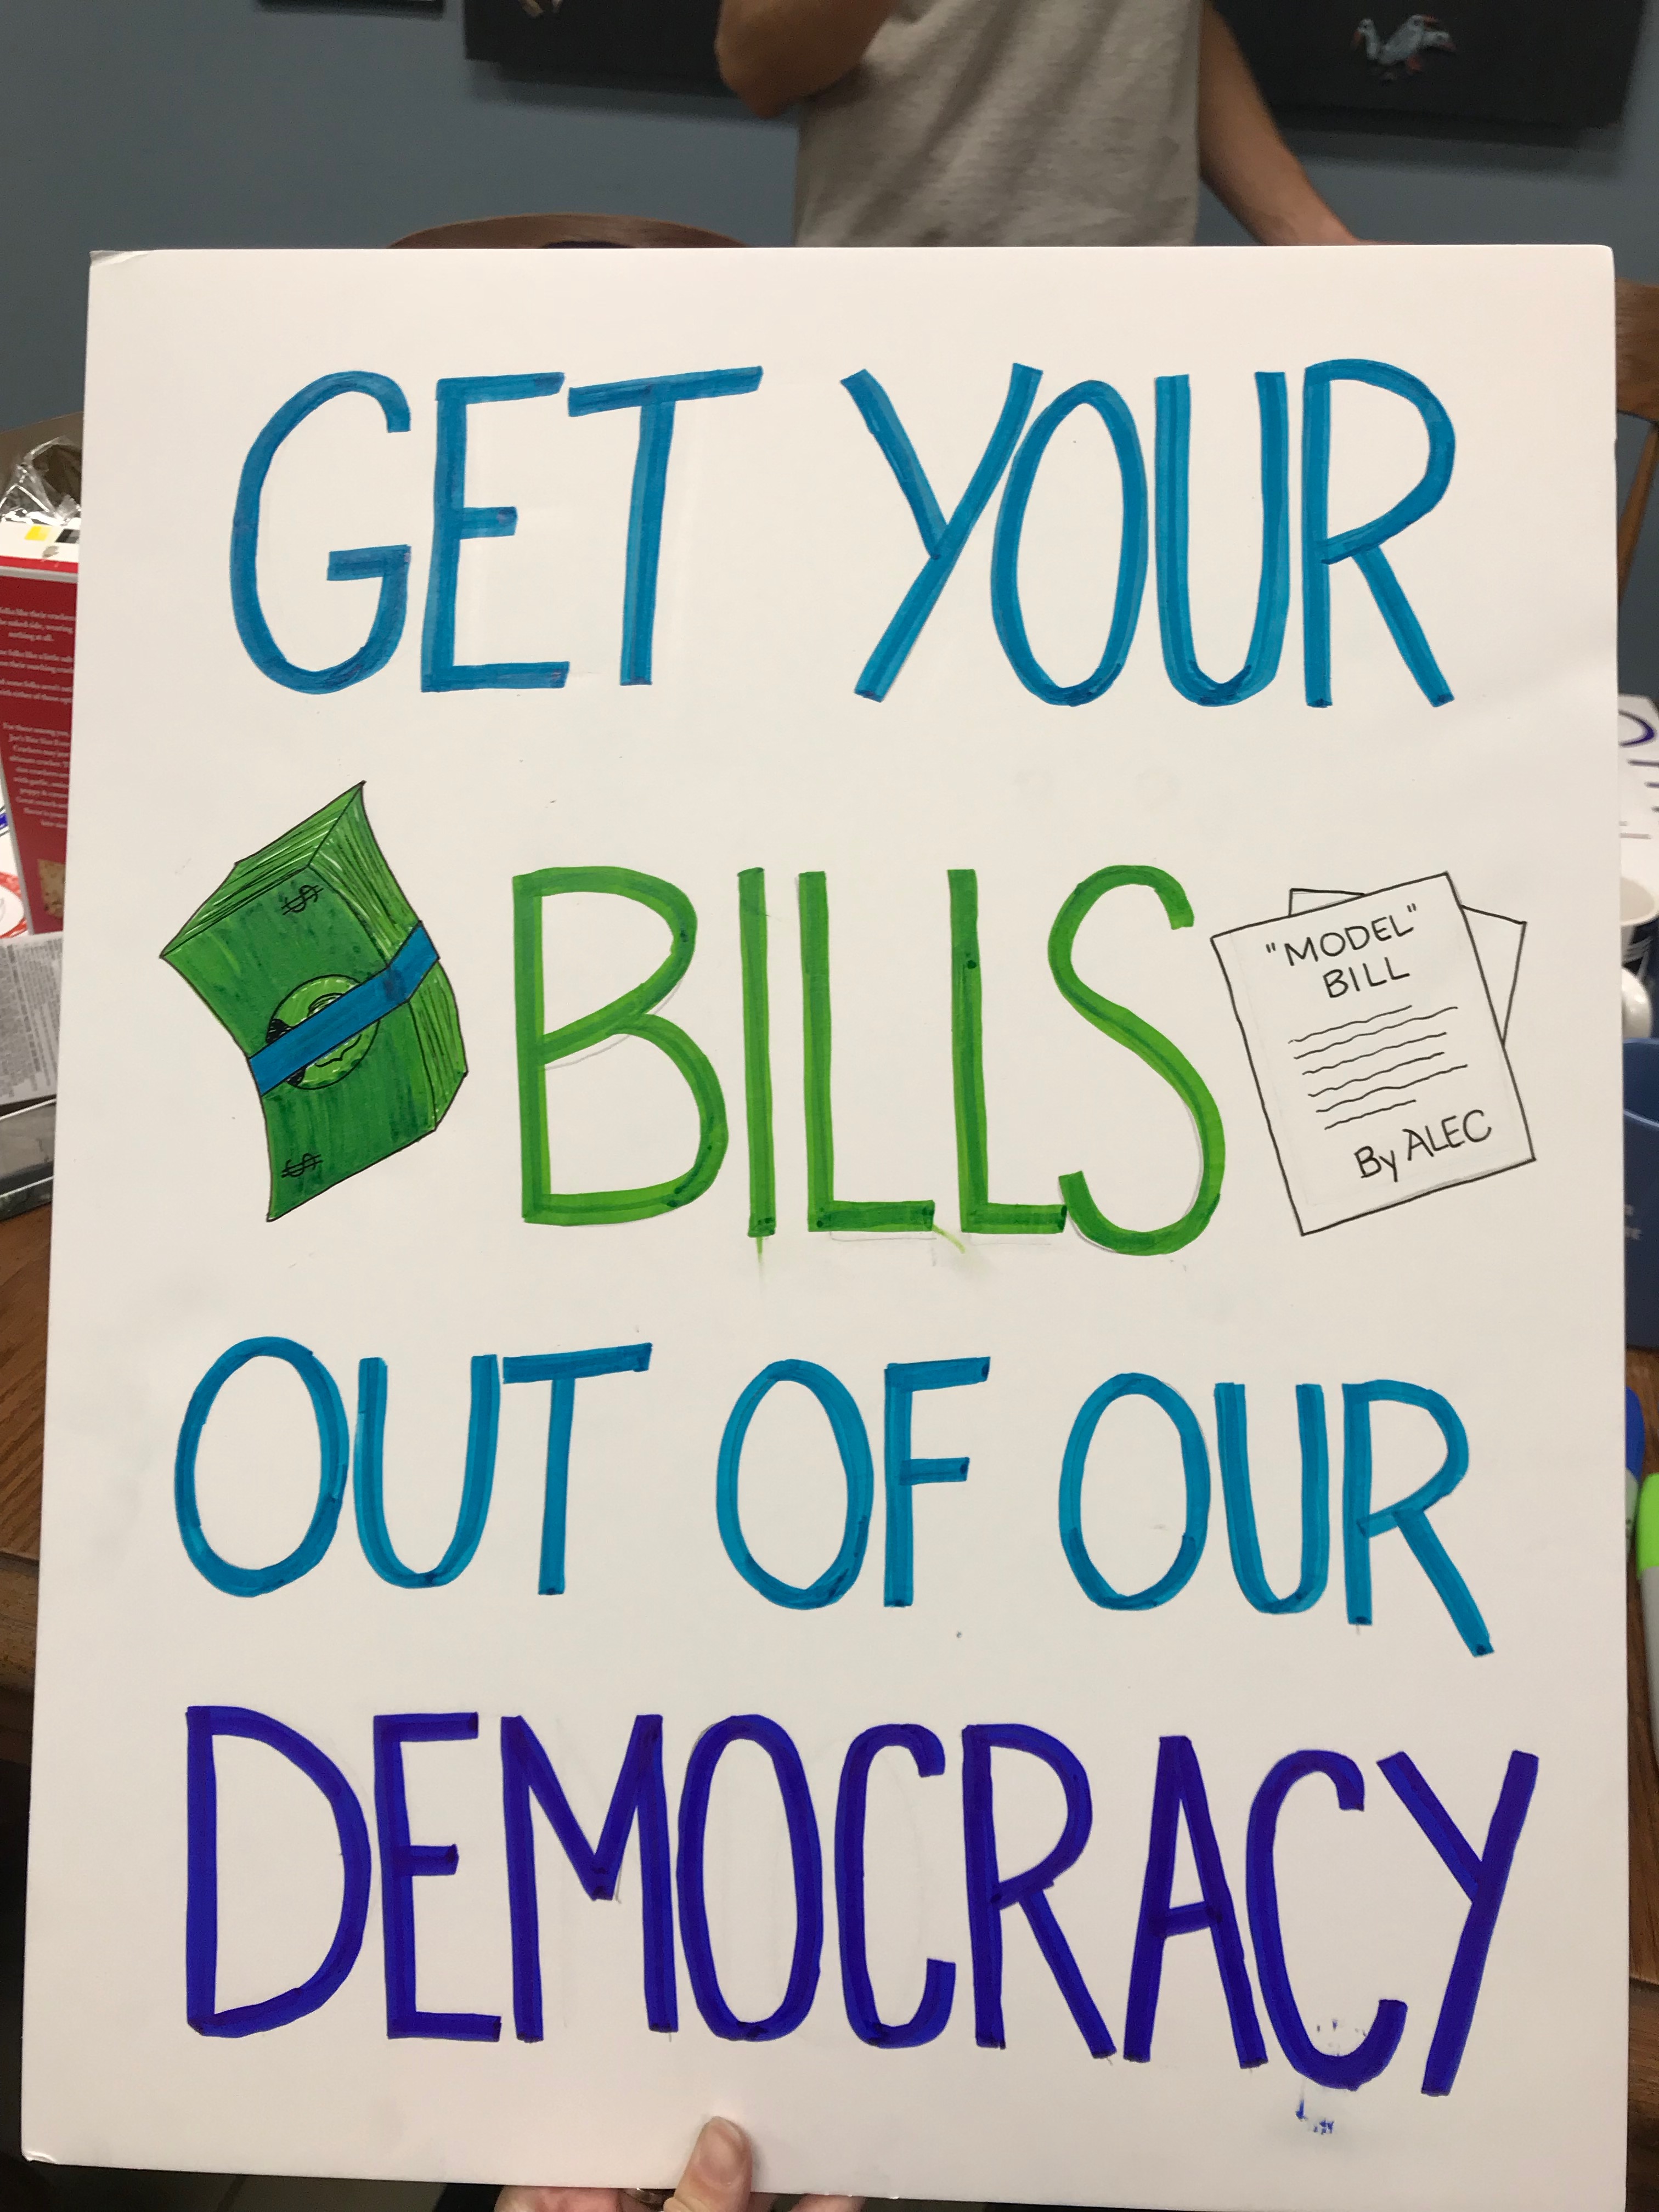 GET YOUR
BILLS
$
$
"MODEL"
BILL
By ALEC
OUT OF OUR
DEMOCRACY